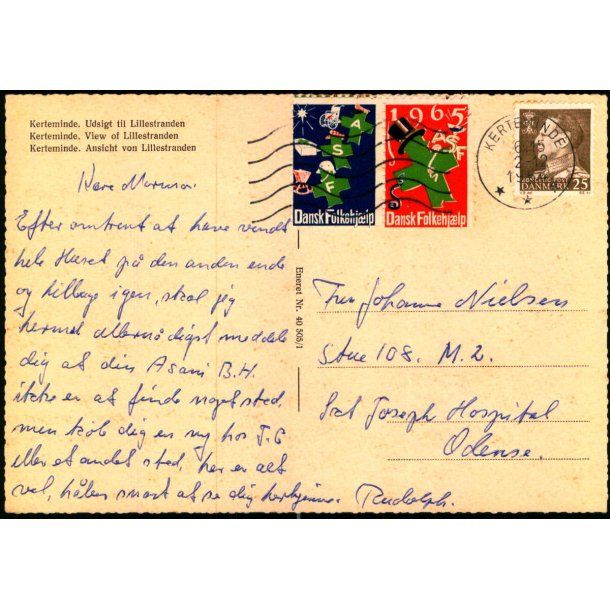 Kerteminde. Udsigt til Lillestranden
Kerteminde. View of Lillestranden
Kerteminde. Ansicht von Lillestranden
Kære
Efter omtrent at have vendt
hele Huset på den anden ende
og tilbage igen, skal jeg
hermed allernådigst meddele
dig at din B.H.
ikke er at finde noget sted,
men køb dig en ny hos
eller et andet sted, her er alt
vel, håber snart at se dig herhjemme. Rudolph.
Eneret Nr. 40 505/1
ASF
Dansk Folkehjælp
1965
ASF
Dansk Folkehjælp
KERTEMINDE
DANMARK 25
Fru Johanne Nielsen
Stue 108. M. 2.
Sct Joseph Hospital
Odense.